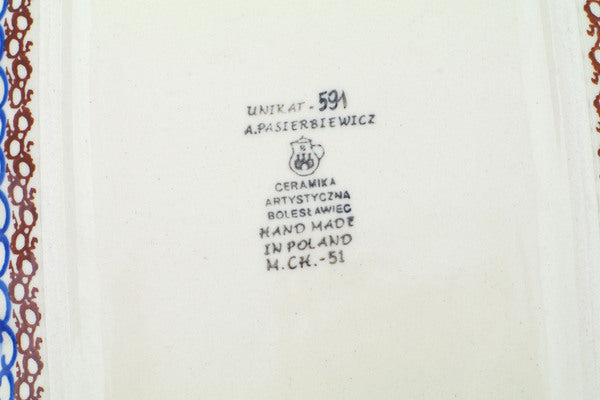 UNIKAT - 591
A.PASIERBIEWICZ
CERAMIKA
ARTYSTYCZNA
BOLESŁAWIEC
HAND MADE
IN POLAND
M.CH.-51